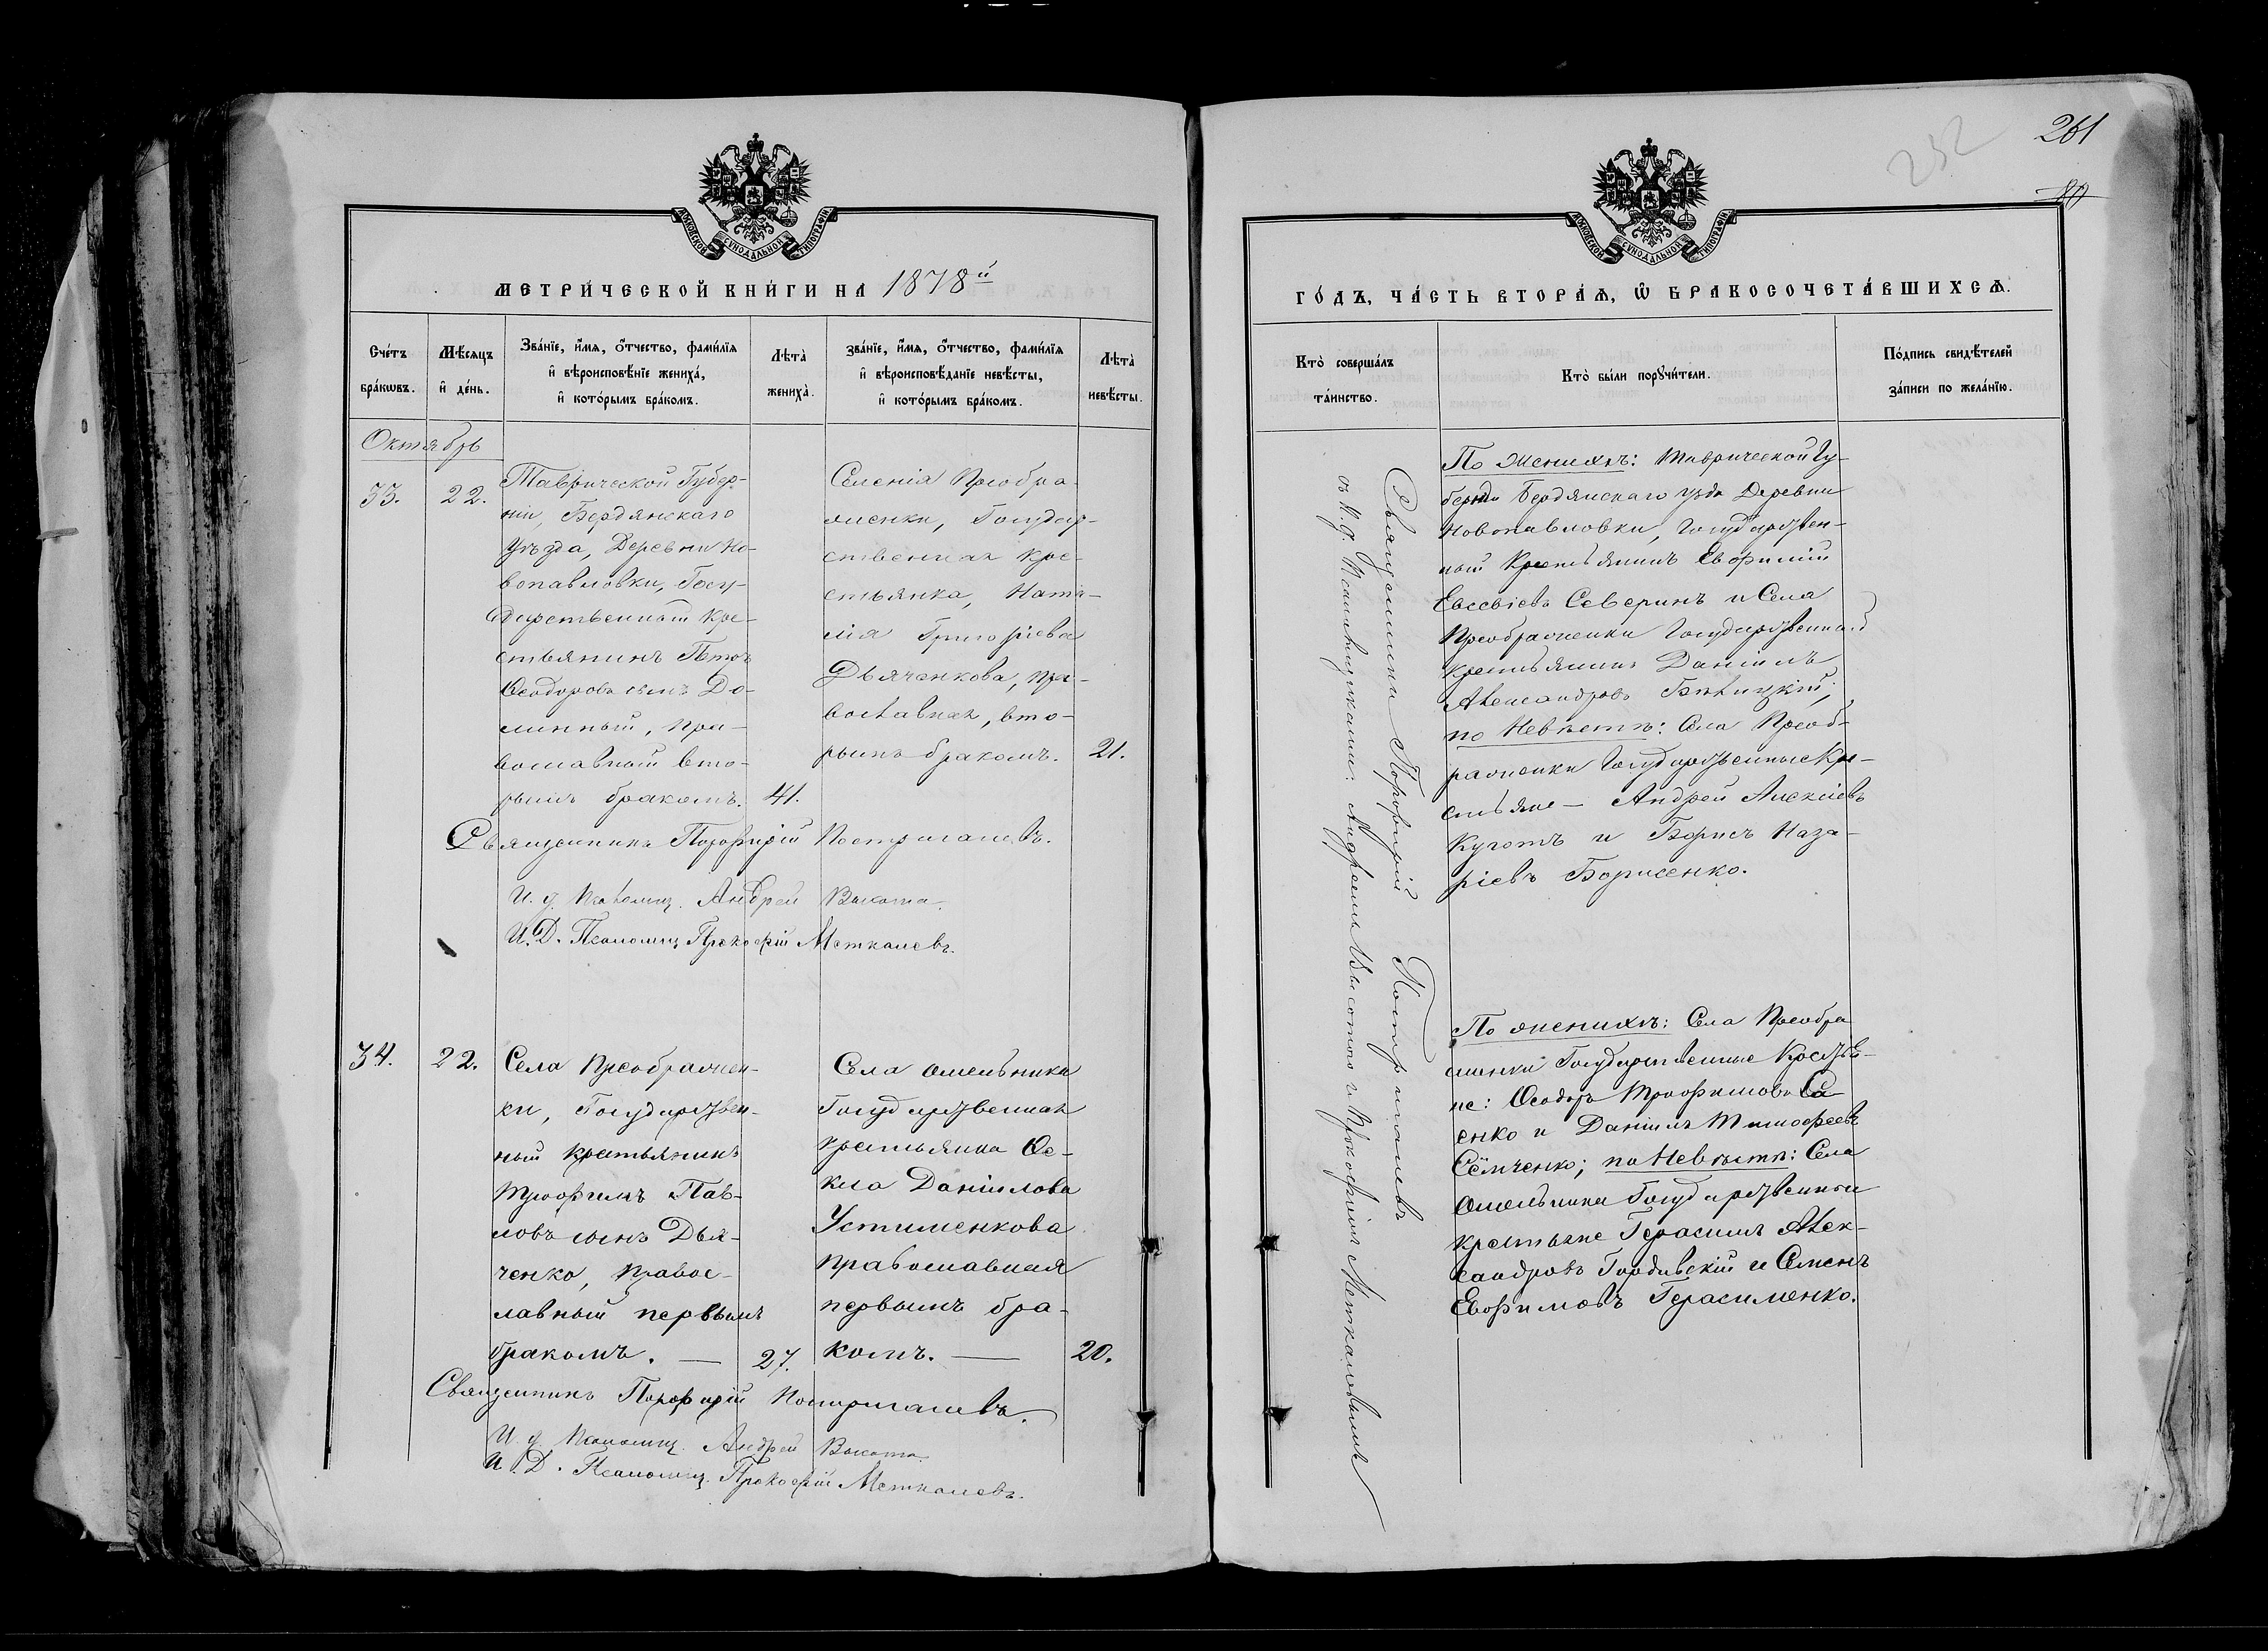 261
232
80
МОСКОВСКОЙ СѴНОДАЛЬНОЙ ТИПОГРАФІИ
МЕТРИ́ЧЕСКОЙ КНИ́ГИ НА 1878й
Сче́тъ бра́кωвъ.
Мѣ́сяцъ и҆ де́нь.
Зва́нїе, и҆́мѧ, ѻ҆́тчество, фами́лїѧ и҆ вѣроисповѣ́нїе жениха̀, и҆ кото́рымъ бра́комъ.
Лѣта̀ жениха̀.
зва́нїе, и҆́мѧ, ѻ҆́тчество, фами́лїѧ и҆ вѣроисповѣ́данїе невѣ́сты, и҆ кото́рымъ бра́комъ.
Лѣта̀ невѣ́сты.
Октябрь
33.
22.
Таврической Губер-
ніи, Бердянскаго
Уѣзда, Деревни Но-
вопавловки, Госу-
дарственный Кре-
стьянинъ Петръ
Ѳеодоровъ сынъ До-
линный, пра-
вославный вто-
рымъ бракомъ.
41.
Селенія Преобра-
женки, Государ-
ственная Кре-
стьянка, Ната-
лія Григоріева
Дьяченкова, пра-
вославная, вто-
рымъ бракомъ.
21.
Священникъ Порфирій Постригачевъ.
И. д. Псаломщ. Андрей Высота.
И. Д. Псаломщ. Прокофій Меткалевъ.
34.
22.
Села Преображен-
ки, Государствен-
ный крестьянинъ
Трофимъ Пав-
ловъ сынъ Дья-
ченко, Правос-
лавный первымъ
бракомъ. —
27.
Села Омельника
Государственная
крестьянка Ѳе-
кла Даніилова
Устименкова
православная
первымъ бра-
комъ. —
20.
Священникъ Порфирій Постригачевъ.
И. д. Псаломщ. Андрей Высота.
И. Д. Псаломщ. Прокофій Меткалевъ.
МОСКОВСКОЙ СѴНОДАЛЬНОЙ ТИПОГРАФІИ
ГО́ДЪ, ЧА́СТЬ ВТОРА́Я, Ѡ҆ БРАКОСОЧЕТА́ВШИХСѦ.
Кто̀ соверша́лъ та́инство.
Кто̀ бы́ли порꙋчи́тели.
По́дпись свидѣ́телей за́писи по жела́нїю.
Священникъ Порфирій Постригачевъ
съ И. д. Псаломщиками: Андреемъ Высотою и Прокофіемъ Меткалевымъ
По женихѣ: Таврической Гу-
берніи Бердянскаго уѣзда Деревни
Новопавловки, Государствен-
ный Крестьянинъ Евфимій
Евсевіевъ Северинъ и Села
Преображенки Государственный
крестьянинъ Даніилъ
Александровъ
по Невѣстѣ: Села Преоб-
раженки Государственные Кре-
стьяне — Андрей Алексіевъ
и Борисъ Наза-
ріевъ Борисенко.
По женихѣ: Села Преобра
женки Государственные Кресть-
не: Ѳеодоръ Трофимовъ Са
енко и Даніилъ Тимофеевъ
Сёмченко; по Невѣстѣ: Села
Омельника Государственныи
крестьяне Герасимъ Алек-
сандровъ Гордѣвскій и Семенъ
Евфимовъ Герасименко.